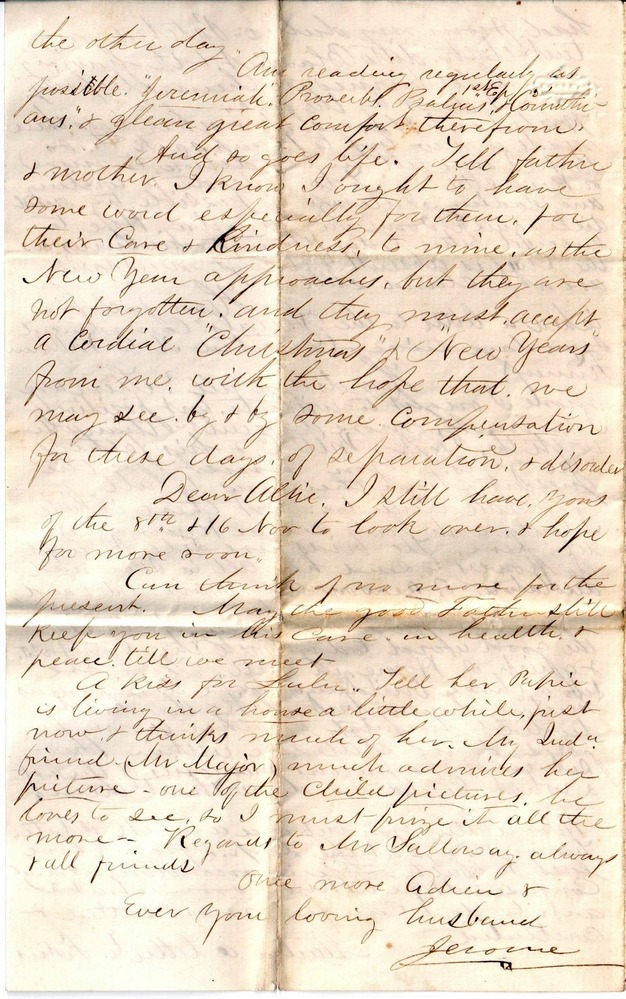 the other day.
Am reading regularly as
possible. "Jeremiah". Proverbs. Psalms, 1st Ep/ Corinthi-
ans", & glean great comfort therefrom.
And so goes life. Tell father
& mother, I know I ought to have
some word especially for them, for
their Care & Kindness, to mine, as the
New Year approaches, but they are
not forgotten, and they must, accept
a Cordial "Christmas" & "New Years"
from me, with the hope that, we
may see, by & by some Compensation
for these days, of separation, & disorder
Dear Allie, I still have, yours
of the 8th & 16 Nov to look over, & hope
for more soon.
Can think of no more for the
present. May the good Father still
keep you in his Care, in health, &
peace, till we meet
A kiss for Lulu. Tell her Papie
is living in a house a little while, just
now, & thinks much of her. My Inda
friend (Mr Major) much admires her
picture - one of the Child pictures, he
loves to see, so I must prize it all the
more - Regards to Mr Salloway, always
& all friends
Once more Adieu &
Ever your loving husband
Jerome